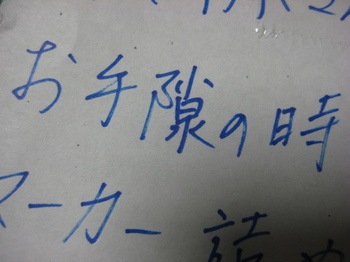 お手隙の時
マーカー 詰め